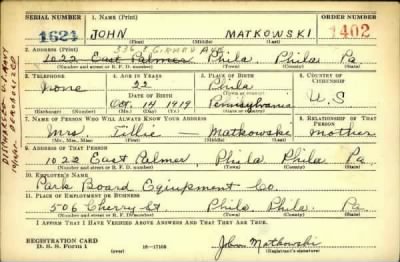 SERIAL NUMBER 1. NAME (Print) ORDER NUMBER
1621 JOHN MATKOWSKI 1402
(First) (Middle) (Last)
2. ADDRESS (Print) 336 E. GIRARD AVE
1022 East Palmer Phila. Phila. Pa
(Number and street or R. F. D. number) (Town) (County) (State)
3. TELEPHONE 4. AGE IN YEARS 5. PLACE OF BIRTH 6. COUNTRY OF CITIZENSHIP
None 22 Phila
DATE OF BIRTH (Town or county)
Oct. 14 1919 Pennsylvania U.S
(Exchange) (Number) (Mo.) (Day) (Yr.) (State or country)
7. NAME OF PERSON WHO WILL ALWAYS KNOW YOUR ADDRESS 8. RELATIONSHIP OF THAT PERSON
Mrs. Tillie — Matkowski mother
(Mr., Mrs., Miss) (First) (Middle) (Last)
9. ADDRESS OF THAT PERSON
1022 East Palmer, Phila Phila Pa.
(Number and street or R. F. D. number) (Town) (County) (State)
10. EMPLOYER'S NAME
Park Board Equipment Co.
11. PLACE OF EMPLOYMENT OR BUSINESS
506 Cherry St Phila Phila. Pa.
(Number and street or R. F. D. number) (Town) (County) (State)
I AFFIRM THAT I HAVE VERIFIED ABOVE ANSWERS AND THAT THEY ARE TRUE.
REGISTRATION CARD
D. S. S. Form 1 (over) 16—17105 John Matkowski
(Registrant's signature)